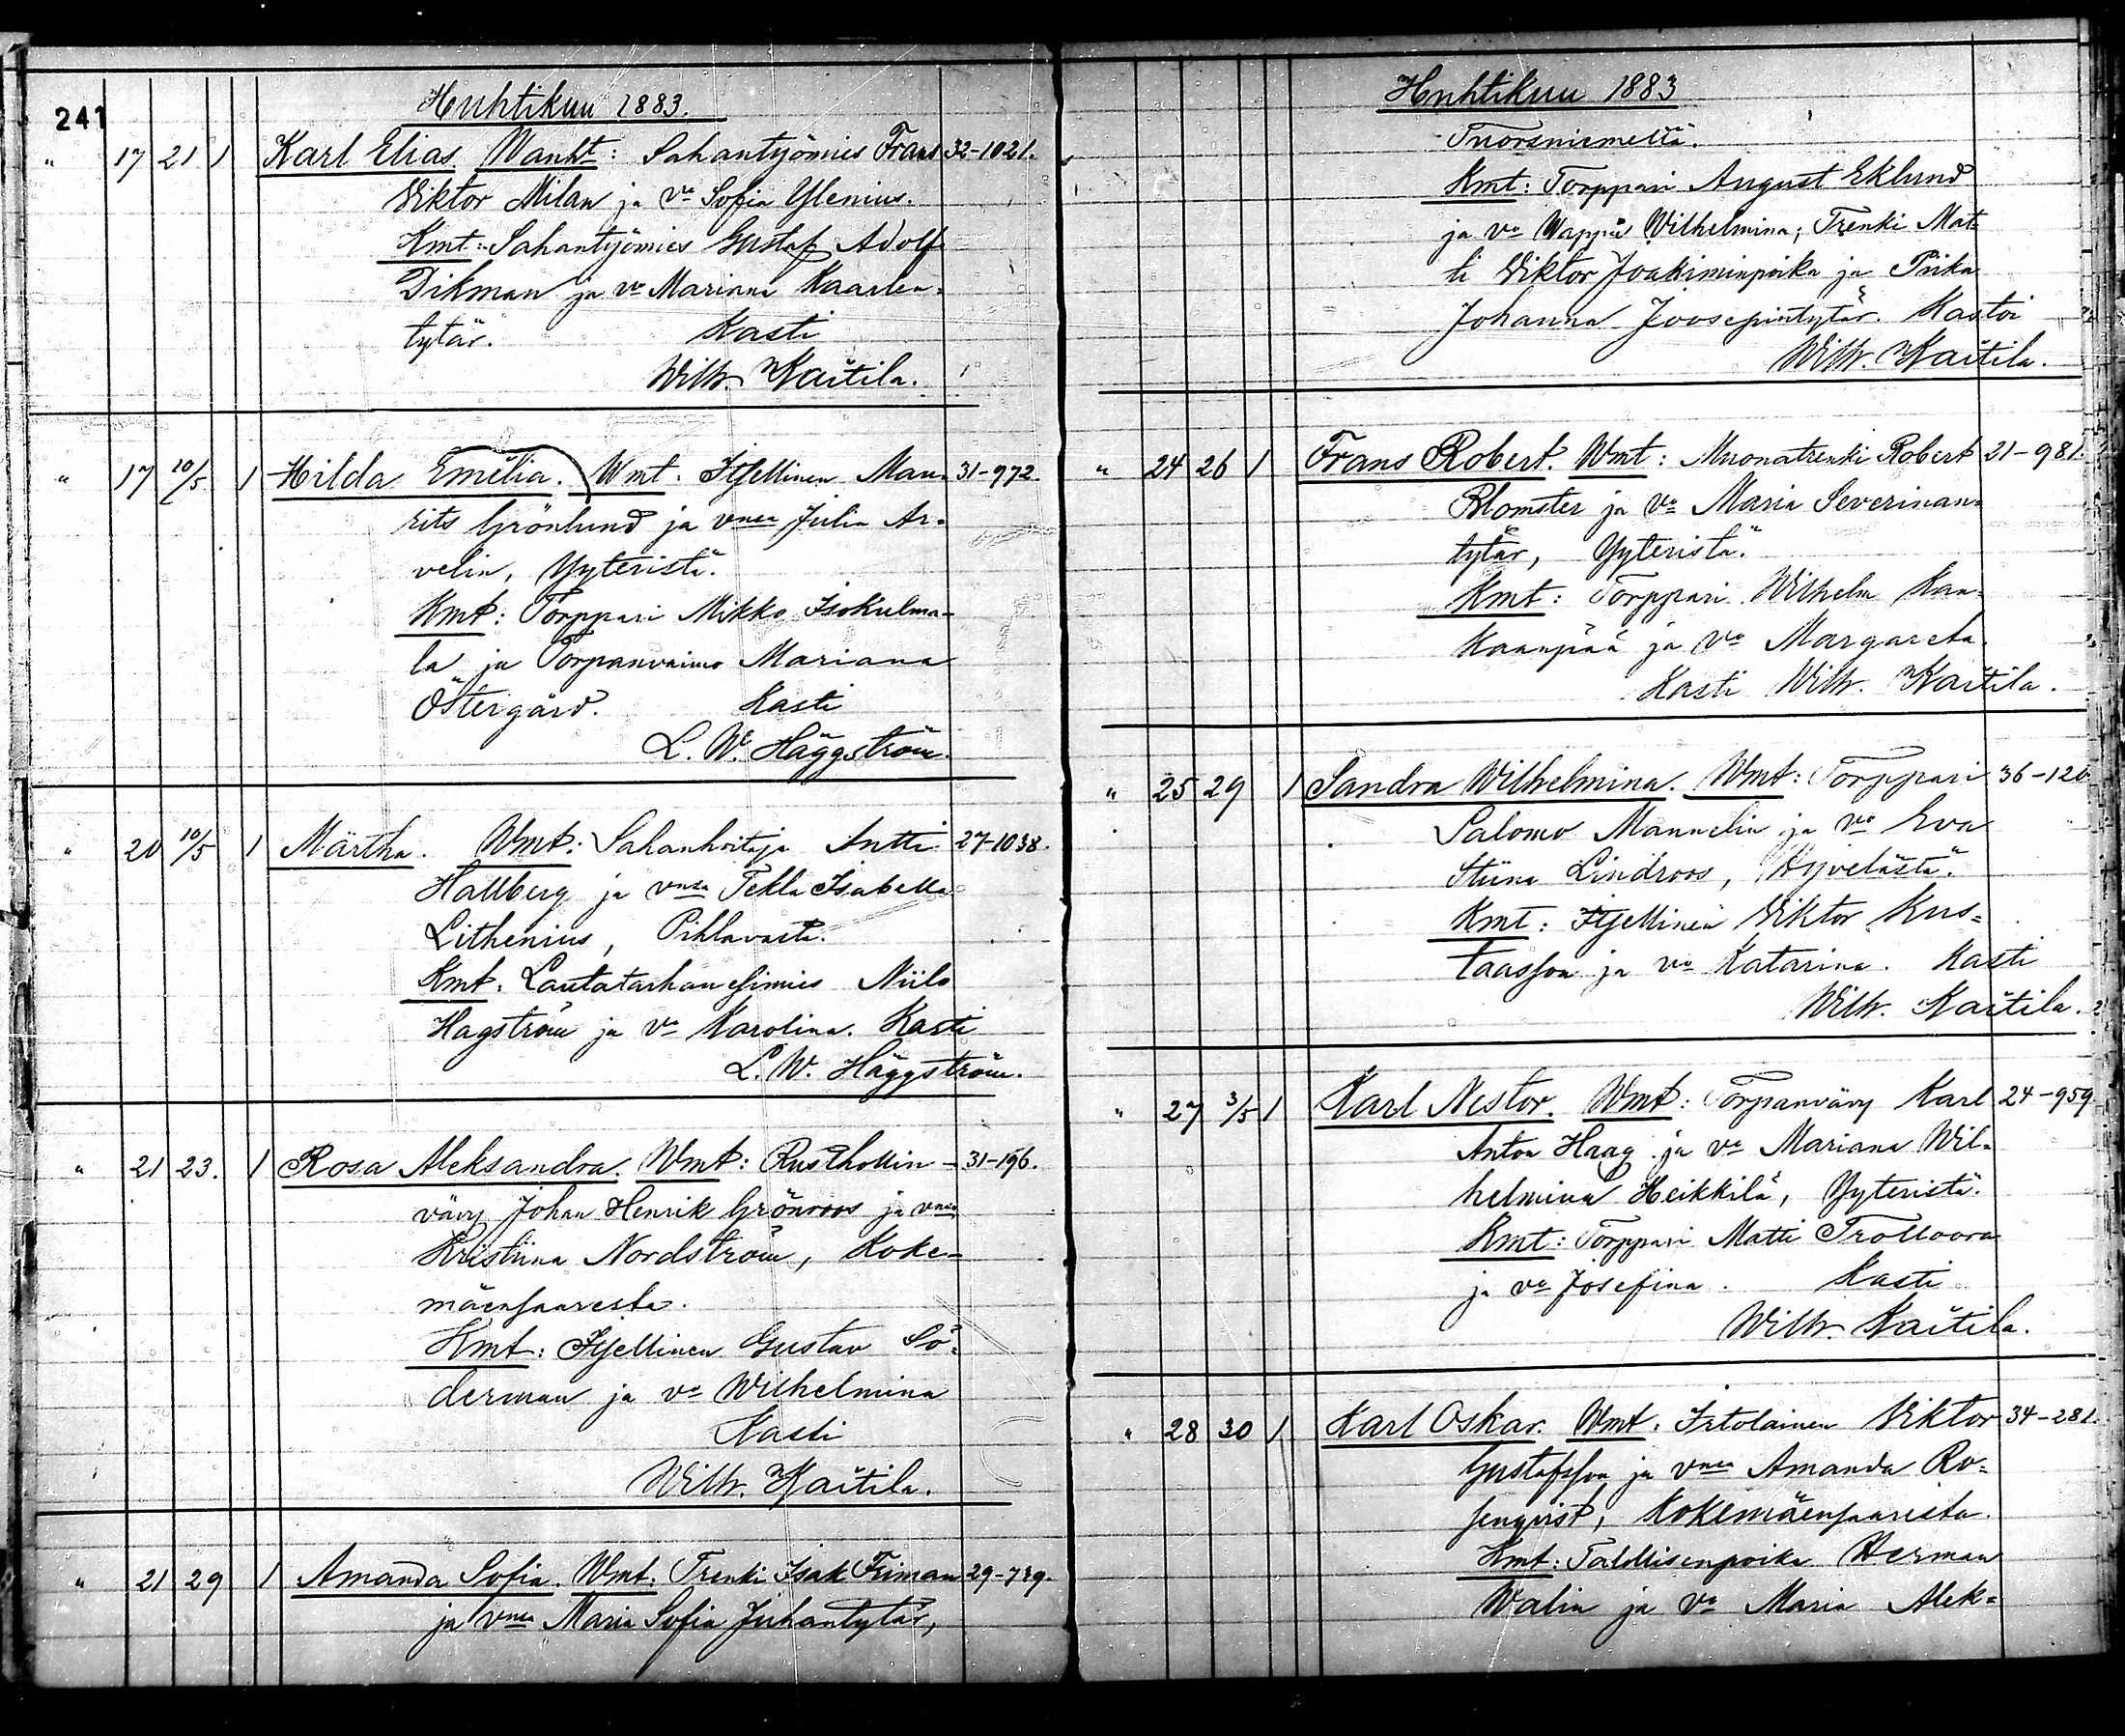 241
Huhtikuu 1883.
" 17 21 1 Karl Elias. Wanht: Sahantyömies Frans 32-1021.
Viktor Milan ja vo Sofia Ylenius.
Kmt: Sahantyömies Gustaf Adolf
Dikman ja vo Mariana Kaarlen-
tytär. Kasti
Wilh. Kaitila.
" 17 10/5. 1 Hilda Emilia. Wmt. Itjellinen Mau- 31-972.
rits Grönlund ja vnsa Julia Ar-
velin, Yyteristä.
Kmt: Torppari Mikko Isokulma-
la ja Torpanvaimo Mariana
Östergård. Kasti
L. W. Häggström.
" 20 10/5 1 Märtha. Wmt: Sahanhoitaja Antti 27-1038.
Hallberg ja vnsa Tekla Isabella
Lithenius, Pihlavasta.
Kmt. Lautatarhanesimies Niilo
Hagström ja vo Karolina. Kasti
L. W. Häggström.
" 21 23. 1 Rosa Aleksandra. Wmt: Rusthollin- 31-196.
vävy Johan Henrik Grönroos ja vnsa
Kristiina Nordström, Koke-
mäensaaresta.
Kmt: Itjellinen Gustav Sö-
derman ja vo Wilhelmina
Kasti
Wilh. Kaitila.
" 21 29 1 Amanda Sofia. Wmt. Trenki Isak Friman 29-739.
ja vnsa Maria Sofia Juhantytär,
Huhtikuu 1883
Tuorsniemeltä.
Kmt: Torppari August Eklund
ja vo Wappu Wilhelmina; Trenki Mat-
ti Viktor Joakiminpoika ja Piika
Johanna Joosepintytär. Kastoi
Wilh. Kaitila.
" 24 26 1 Frans Robert. Wmt: Muonatrenki Robert 21-981.
Blomster ja vo Maria Severinan-
tytär, Yyteristä.
Kmt: Torppari Wilhelm Kan-
kaanpää ja vo Margareta.
Kasti Wilh. Kaitila.
" 25 29 1 Sandra Wilhelmina. Wmt: Torppari 36-120
Salomo Mannelin ja vo Eva
Stiina Lindroos, Hyvelästä.
Kmt: Itjellinen Viktor Kus-
taasson ja vo Katarina. Kasti
Wilh. Kaitila.
" 27 3/5 1 Karl Nestor. Wmt: Torpanvävy Karl 24-959
Anton Haag ja vo Mariana Wil-
helmina Heikkilä, Yyteristä.
Kmt: Torppari Matti Trolloora
ja vo Josefina. Kasti
Wilh. Kaitila.
" 28 30 1 Karl Oskar. Wmt. Irtolainen Viktor 34-281.
Gustafsson ja vnsa Amanda Ro-
senqvist, Kokemäensaaresta.
Kmt: Talollisenpoika Herman
Walin ja vo Maria Alek-